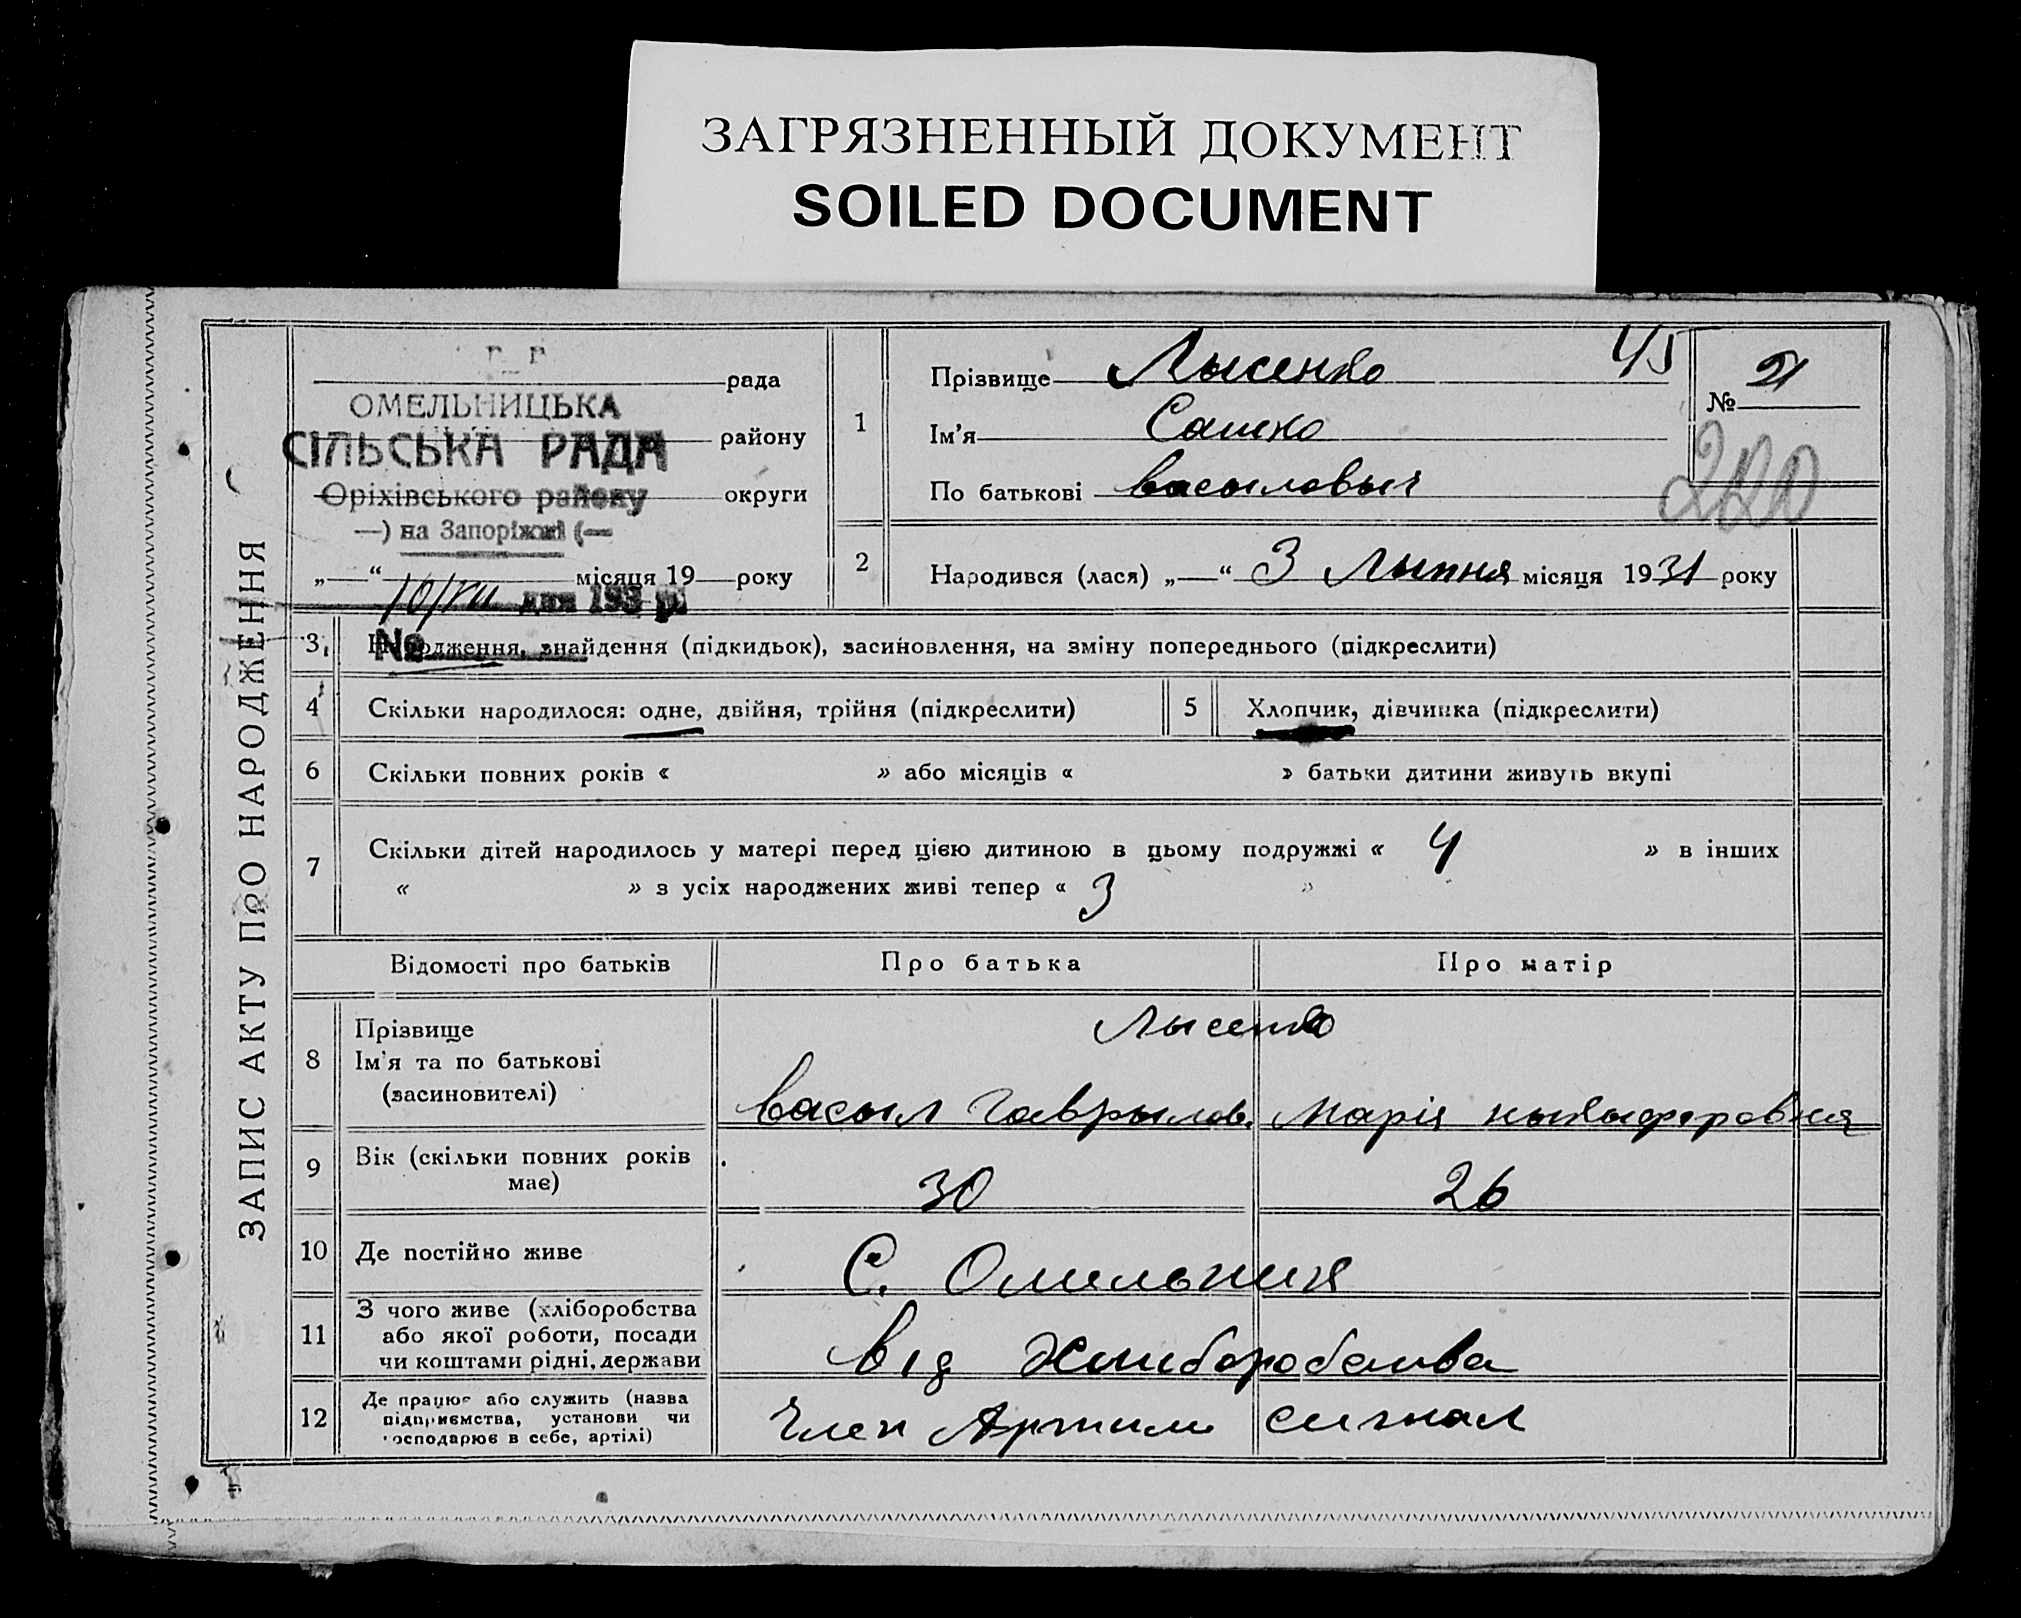 ЗАГРЯЗНЕННЫЙ ДОКУМЕНТ
SOILED DOCUMENT
ЗАПИС АКТУ ПРО НАРОДЖЕННЯ
рада
ОМЕЛЬНИЦЬКА
СІЛЬСЬКА РАДА району
Оріхівського району округи
—) на Запоріжжі (—
„—“ місяця 19 року
дня 193 р.
№
1 Прізвище Лысенко 45
Ім'я Сашко
По батькові васыловыч
№ 21
220
2 Народився (лася) „—“ 3 Лыпня місяця 1931 року
3 Народження, знайдення (підкидьок), засиновлення, на зміну попереднього (підкреслити)
4 Скільки народилося: одне, двійня, трійня (підкреслити) 5 Хлопчик, дівчинка (підкреслити)
6 Скільки повних років « » або місяців « » батьки дитини живуть вкупі
7 Скільки дітей народилось у матері перед цією дитиною в цьому подружжі « 4 » в інших
« » з усіх народжених живі тепер « 3 »
Відомості про батьків Про батька Про матір
8 Прізвище Лысенко
Ім'я та по батькові
(засиновителі) Васыл Гаврылов. Марія ныкыферовня
9 Вік (скільки повних років
має) 30 26
10 Де постійно живе С. Омельныя
11 З чого живе (хліборобства
або якої роботи, посади
чи коштами рідні, держави від Хлиборобства
12 Де працює або служить (назва
підприємства, установи чи
господарює в себе, артілі) Член Артили сигнал